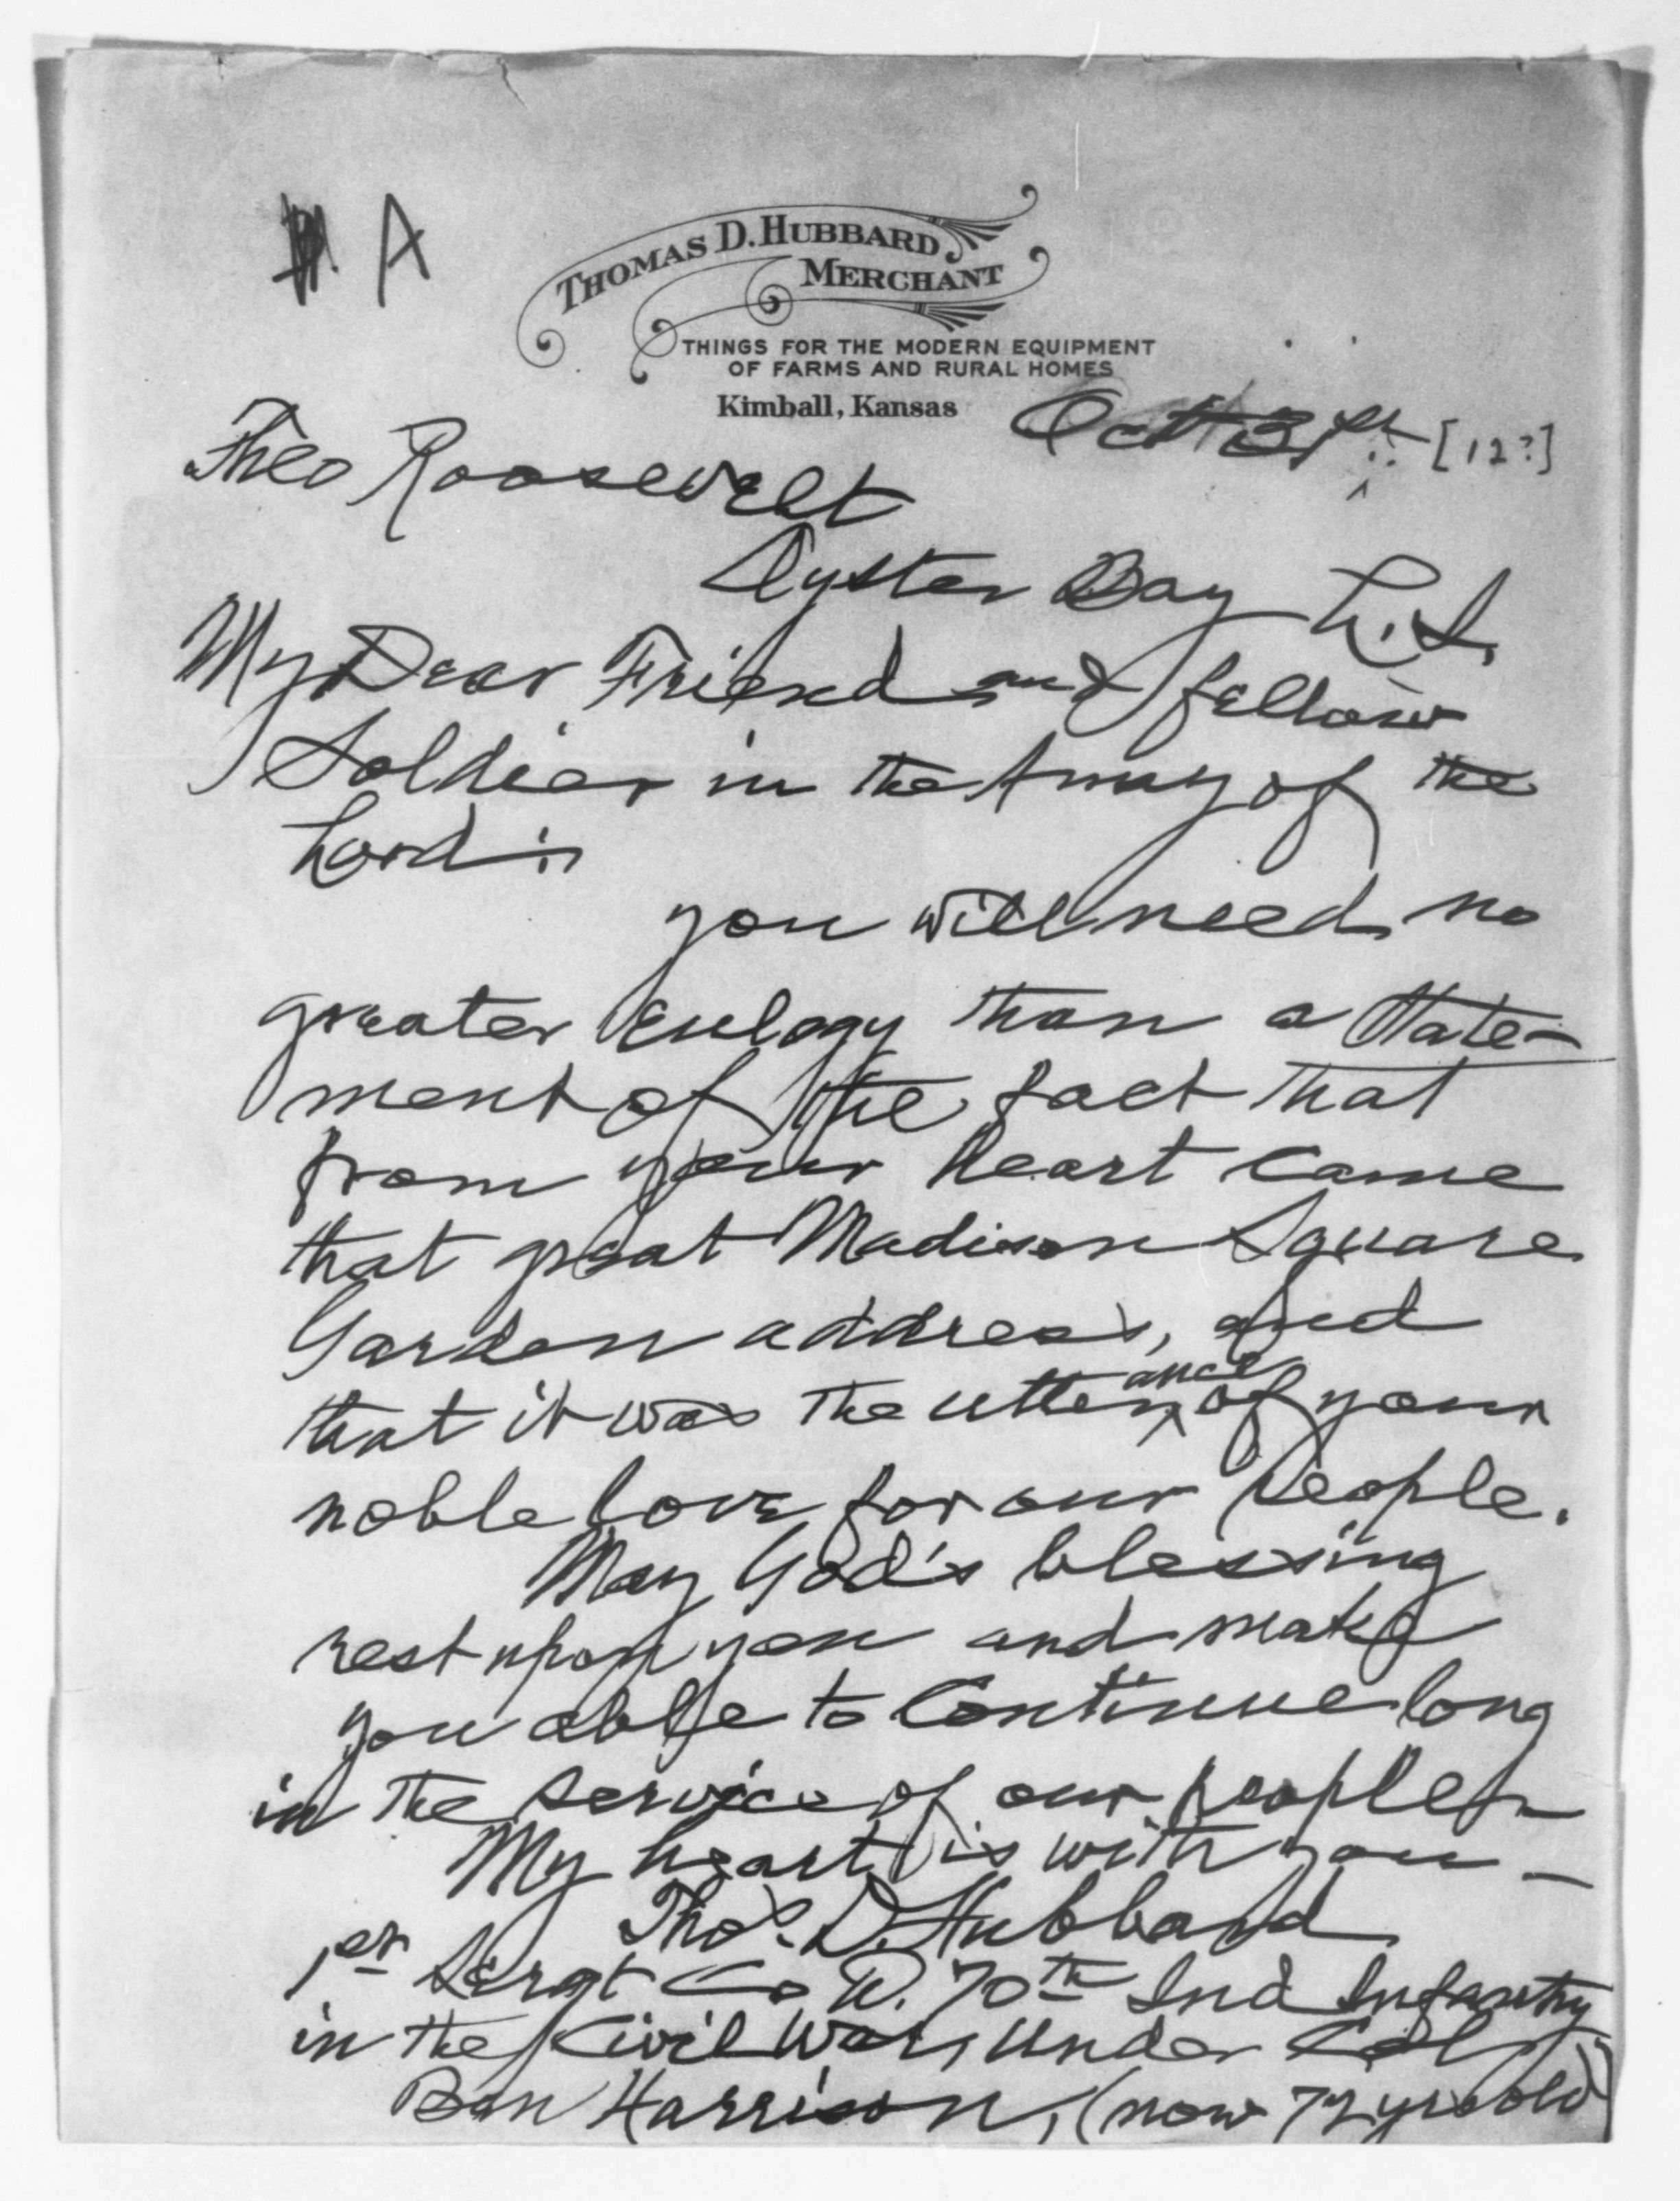 A
THOMAS D. HUBBARD,
MERCHANT
THINGS FOR THE MODERN EQUIPMENT
OF FARMS AND RURAL HOMES
Kimball, Kansas
Oct 31st [12?]
Theo Roosevelt
Oyster Bay L.I.
My Dear Friend and fellow
Soldier in the Army of the
Lord:
you will need no
greater Eulogy than a state-
ment of the fact that
from your heart came
that great Madison Square
Garden address, and
that it was the utterance of your
noble love for our people.
May God's blessing
rest upon you and make
you able to Continue long
in the service of our people
My heart is with you —
Thos. D. Hubbard
1st Sergt Co 70th Ind Infantry
in the Civil War, under Col
Ben Harrison, (now 72 yrs old)